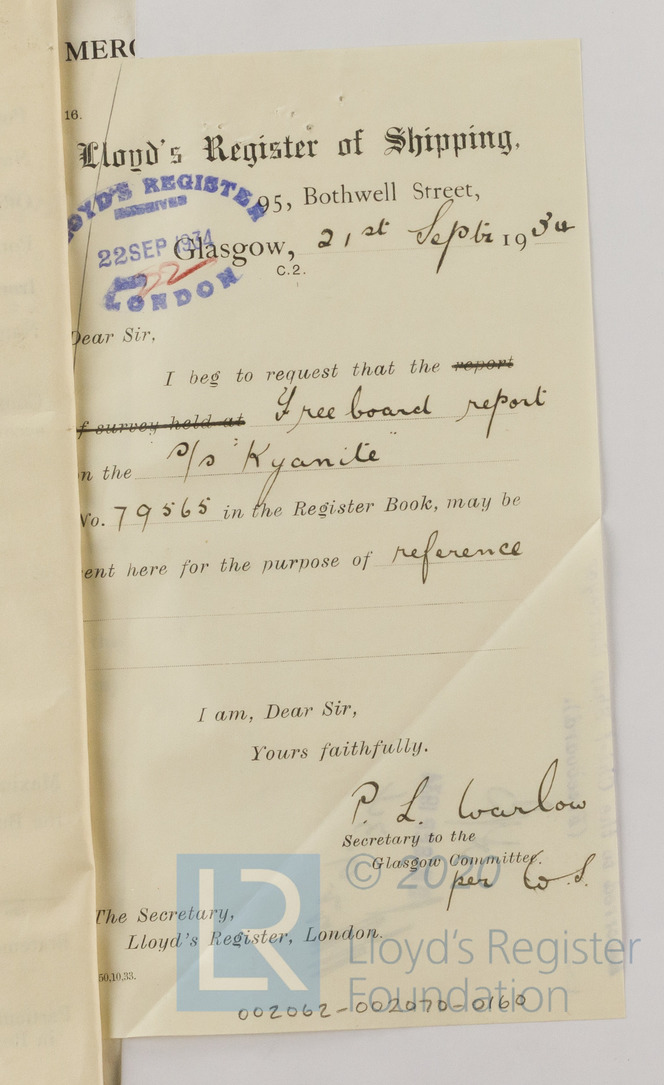 MERC
16.
Lloyd's Register of Shipping,
LOYD'S REGISTER
RECEIVED
22 SEP 1934
LONDON
95, Bothwell Street,
Glasgow, 21st Septr 1934
C.2.
Dear Sir,
I beg to request that the report
f survey held at Freeboard report
n the s/s "Kyanite"
No. 79565 in the Register Book, may be
ent here for the purpose of reference
I am, Dear Sir,
Yours faithfully.
P. L. Warlow
Secretary to the
Glasgow Committee.
per W.S.
The Secretary,
Lloyd's Register, London.
50,10.33.
LR
© 2020
Lloyd's Register
Foundation
002062-002070-0160